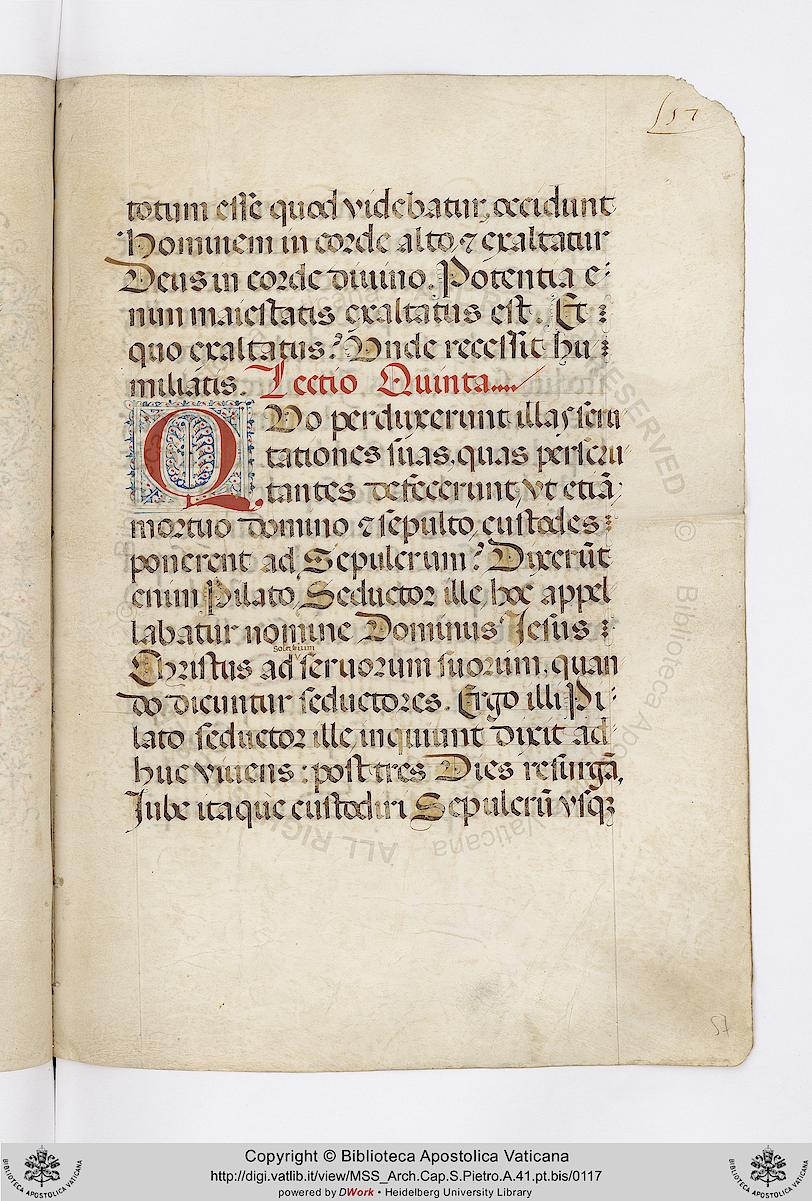 57
totum esse quod videbatur, occidunt
hominem in corde alto, ⁊ exaltatur
Deus in corde divino. Potentia e-
nim maiestatis exaltatus est. Et :
quo exaltatus? Unde recessit hu:
miliatis. Lectio Quinta....
QUo perduxerunt illas scru
tationes suas, quas perscru
tantes defecerunt, vt etiā
mortuo domino ⁊ sepulto, custodes:
ponerent ad Sepulcrum? Dixerūt
enim Pilato, Seductor ille hoc appel
labatur nomine Dominus Jesus :
solatium
Christus ad seruorum suorum, quan
do dicuntur seductores. Ergo illi Pi-
lato seductor ille, inquiunt dixit ad
huc viuens : post tres Dies resurgā,
Jube itaque custodiri Sepulcrū vsqꝫ
57
BIBLIOTECA APOSTOLICA VATICANA
Copyright © Biblioteca Apostolica Vaticana
http://digi.vatlib.it/view/MSS_Arch.Cap.S.Pietro.A.41.pt.bis/0117
powered by DWork • Heidelberg University Library
BIBLIOTECA APOSTOLICA VATICANA